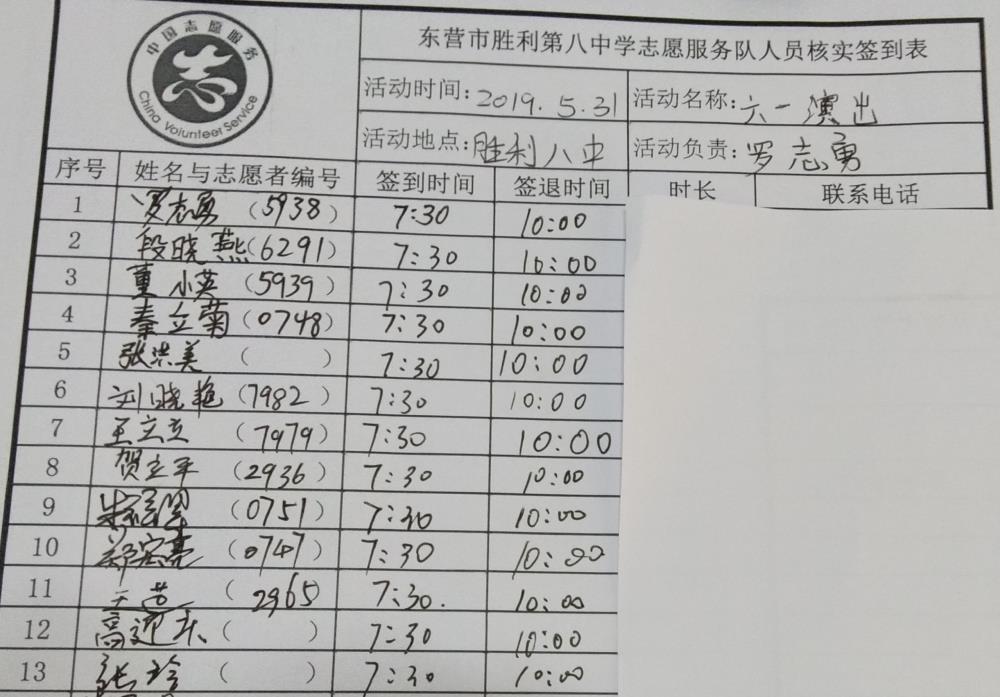 中国志愿服务
China Volunteer Service
东营市胜利第八中学志愿服务队人员核实签到表
活动时间:2019.5.31 活动名称:六一演出
活动地点:胜利八中 活动负责:罗志勇
序号 姓名与志愿者编号 签到时间 签退时间 时长 联系电话
1 罗志勇 (5938) 7:30 10:00
2 段晓燕 (6291) 7:30 10:00
3 董小英 (5939) 7:30 10:00
4 秦立菊 (0748) 7:30 10:00
5 张洪美 ( ) 7:30 10:00
6 刘晓艳 (7982) 7:30 10:00
7 王立立 (7979) 7:30 10:00
8 贺立平 (2936) 7:30 10:00
9 (0751) 7:30 10:00
10 郑宏亮 (0747) 7:30 10:00
11 (2965 7:30. 10:00
12 高迎东 ( ) 7:30 10:00
13 张玲 ( ) 7:30 10:00